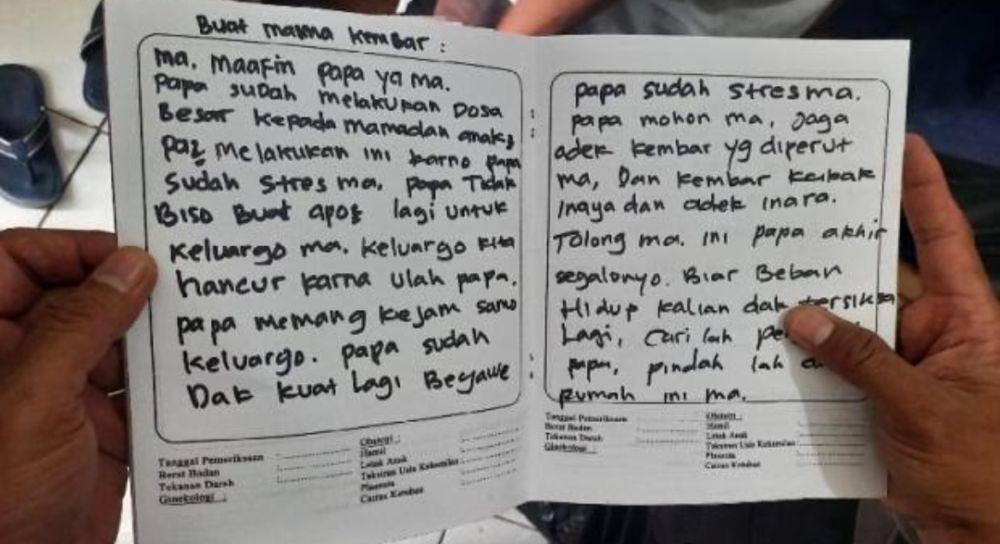 Buat mama kembar :
ma. maafin papa ya ma.
papa sudah melakukan Dosa
Besar kepada mamadan anak2
pa2 melakukan ini karno papa
sudah stres ma. papa Tidak
Biso Buat apo2 lagi untuk
keluargo ma. keluargo kita
hancur karna ulah papa.
papa memang kejam samo
keluargo. papa sudah
Dak kuat Lagi Begawe
Tanggal Pemeriksaan :
Berat Badan :
Tekanan Darah :
Ginekologi :
Obstetri :
Hamil :
Letak Anak :
Taksiran Usia Kehamilan :
Plasenta :
Cairan Ketuban :
papa sudah stres ma.
papa mohon ma, Jaga
adek kembar yg diperut
ma, Dan kembar kakak
Inaya dan adek inara.
Tolong ma. ini papa akhir
segalonyo. Biar Beban
Hidup kalian dak tersiksa
Lagi, cari lah
papa, pindah lah
rumah ini ma.
Tanggal Pemeriksaan :
Berat Badan :
Tekanan Darah :
Ginekologi :
Obstetri :
Hamil :
Letak Anak :
Taksiran Usia Kehamilan :
Plasenta :
Cairan Ketuban :